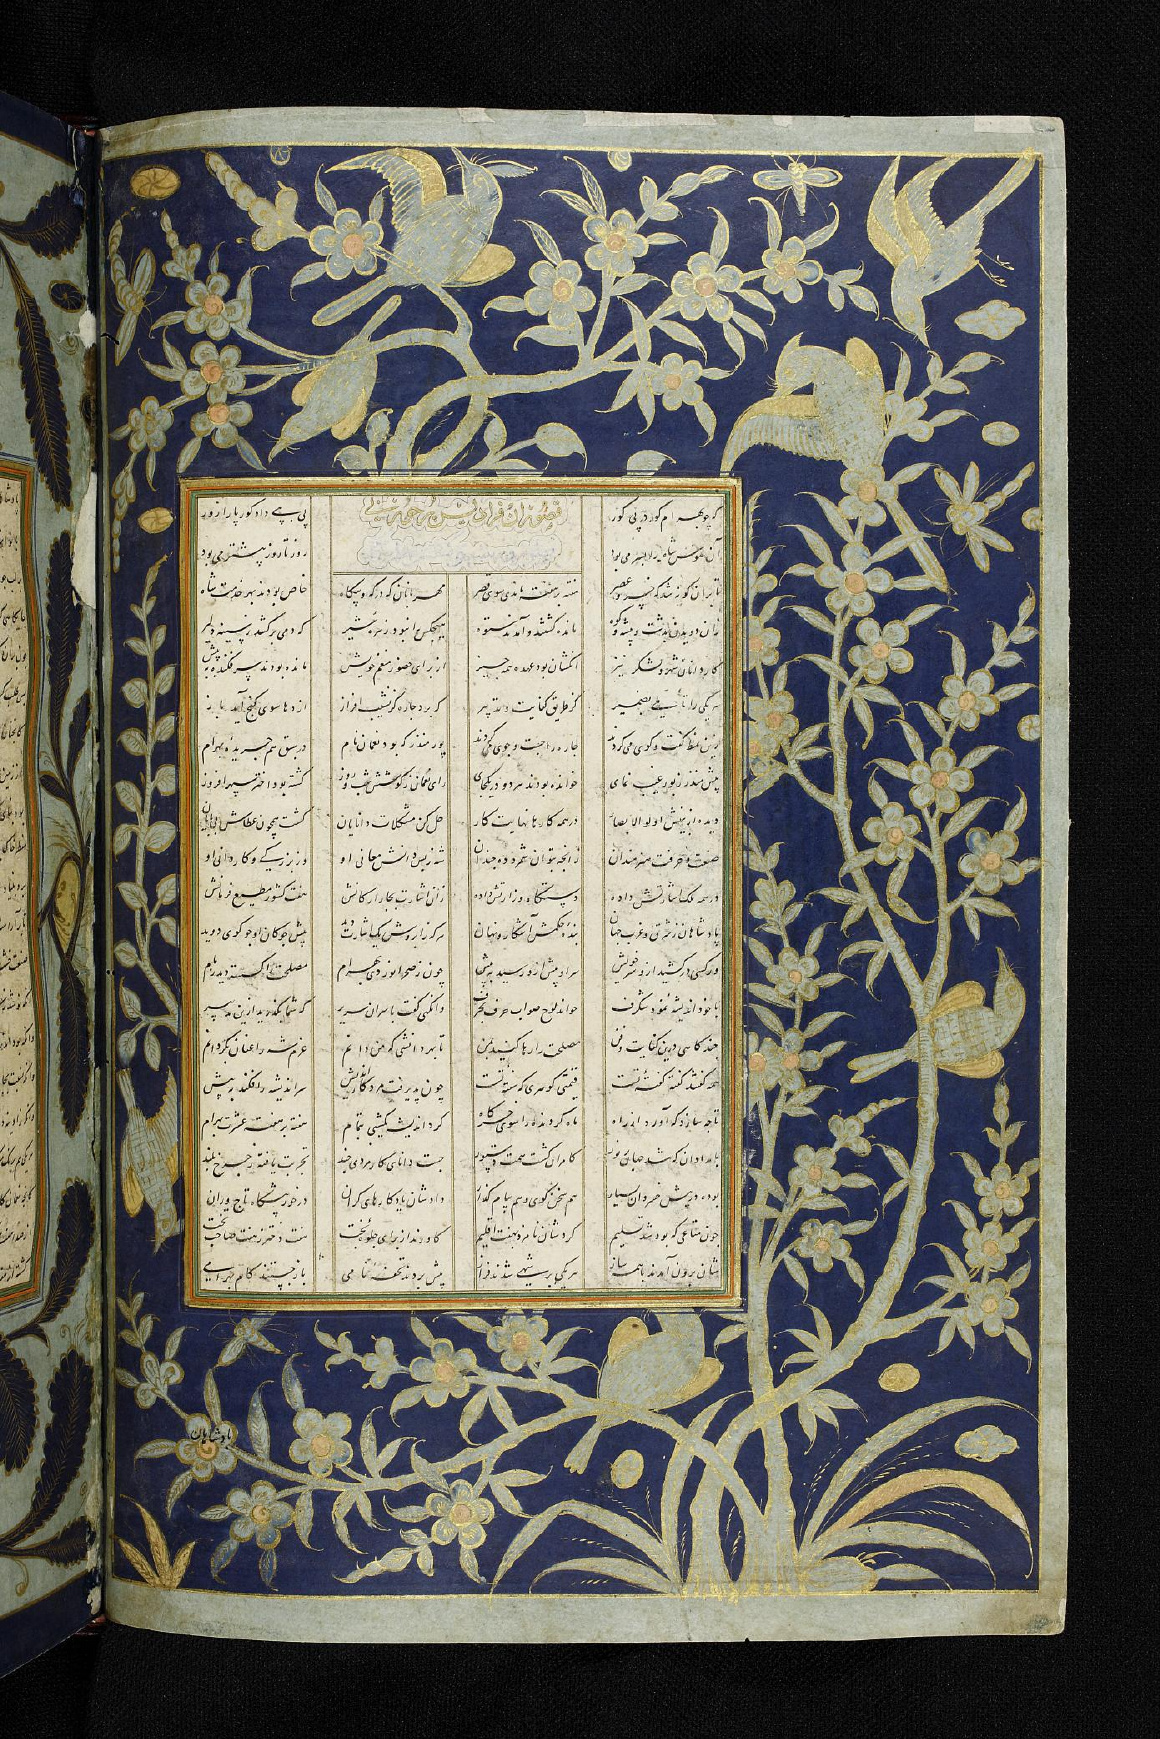 گرچه بهرام گور در پی گور پی بپی داد گور پا را زور
آن هوس شاه را بسر می بود روز تا روز بیشتر می بود
تا بران گور شد که هفته هفته نامدی سوی قصر مهربانان که در گه و بیگاه خاص بودند بهر خدمت شاه
زان دویدن بدشت و بیشه و کوه مانده گشتند و آمدند ستوه هیچکس را نبود زهره شیر که دمی برکشد ز سینه دلیر
کاردانان شهر و لشکر نیز کانشان بود عهده همه چیز از برای حضور منعم خویش مانده بودند سر فکنده به پیش
هر یکی را بضمیر کز طریق کفایت و تدبیر گرد چاره گر نشیب و فراز اژدها سوی گنج آید باز
زین نمط گفت و گوی می کردند چاره را جست و جوی می کردند پور منذر که بود نعمان نام در سبق هم جریده بهرام
پیش منذر ز نور غیب نمای خوانده بودند هر دو در یکجای رای نعمان ز کوشش شب و روز گشته بود اختر سپهر افروز
دیده از بینش اولوالابصار در همه کارها نهایت کار حل کن مشکلات دانایان گشت همچون عطاش بی پایان
صنعت و حرفت هنرمندان زانچه بتوان شمرد ده چندان شه ز بس دانش معانی او وز بزرگی و کاردانی او
در همه اشارتش داده دستگاه وزارتش داده زان اشارت بکار ارکانش هفت کشور مطیع فرمانش
پادشاهان ز شرق و غرب جهان بنده حکمش آشکار و نهان هر که اشارت دید پیش چوگان او چو گوی دوید
ور کسی درکشید ازو سر خویش سر او پیش او رسید به پیش چون ز صحرا نوردی بهرام مصلحت را گسسته دید زمام
با خود اندیشه نمود شگرف خواند لوح صواب حرف بحرف وانگهی گفت با سران سریر که شما بگذرید ازین تدبیر
چند درین کفایت و فن مصلحت را رها کنید بمن تا بهر دانشی که من دانم عزم شه را عنان بگردانم
همه گفتند گفته گفته تست قیمتی گوهری که سفته تست چون پذیرفت مرد سر اندیشه را فکند به پیش
تا چه سازد که آورد از راه ماه گردنده را سوی خرگاه کرد اندیشه بتمام هفته بر هفته عشرت بهرام
بامدادان که شد جهان پرنور کامران گشت جست دانای کاردانی چند تجربت یافته ز چرخ بلند
بوده در پیش خسروان بسیار هم سخن گوی و هم پیام گذار داد شان یادگارهای گران در خور پیشگاه تاجوران
چون متاعی که بود شد تسلیم کردشان نامزد بهفت اقلیم کاورند از برای جلوه بخت هفت دختر ز هفت صاحب تخت
برون آمدند با همه ساز هر یکی بر شدند فراز پیش بردند تحفه نامی باز جستند کام بهرامی
پادشاهان